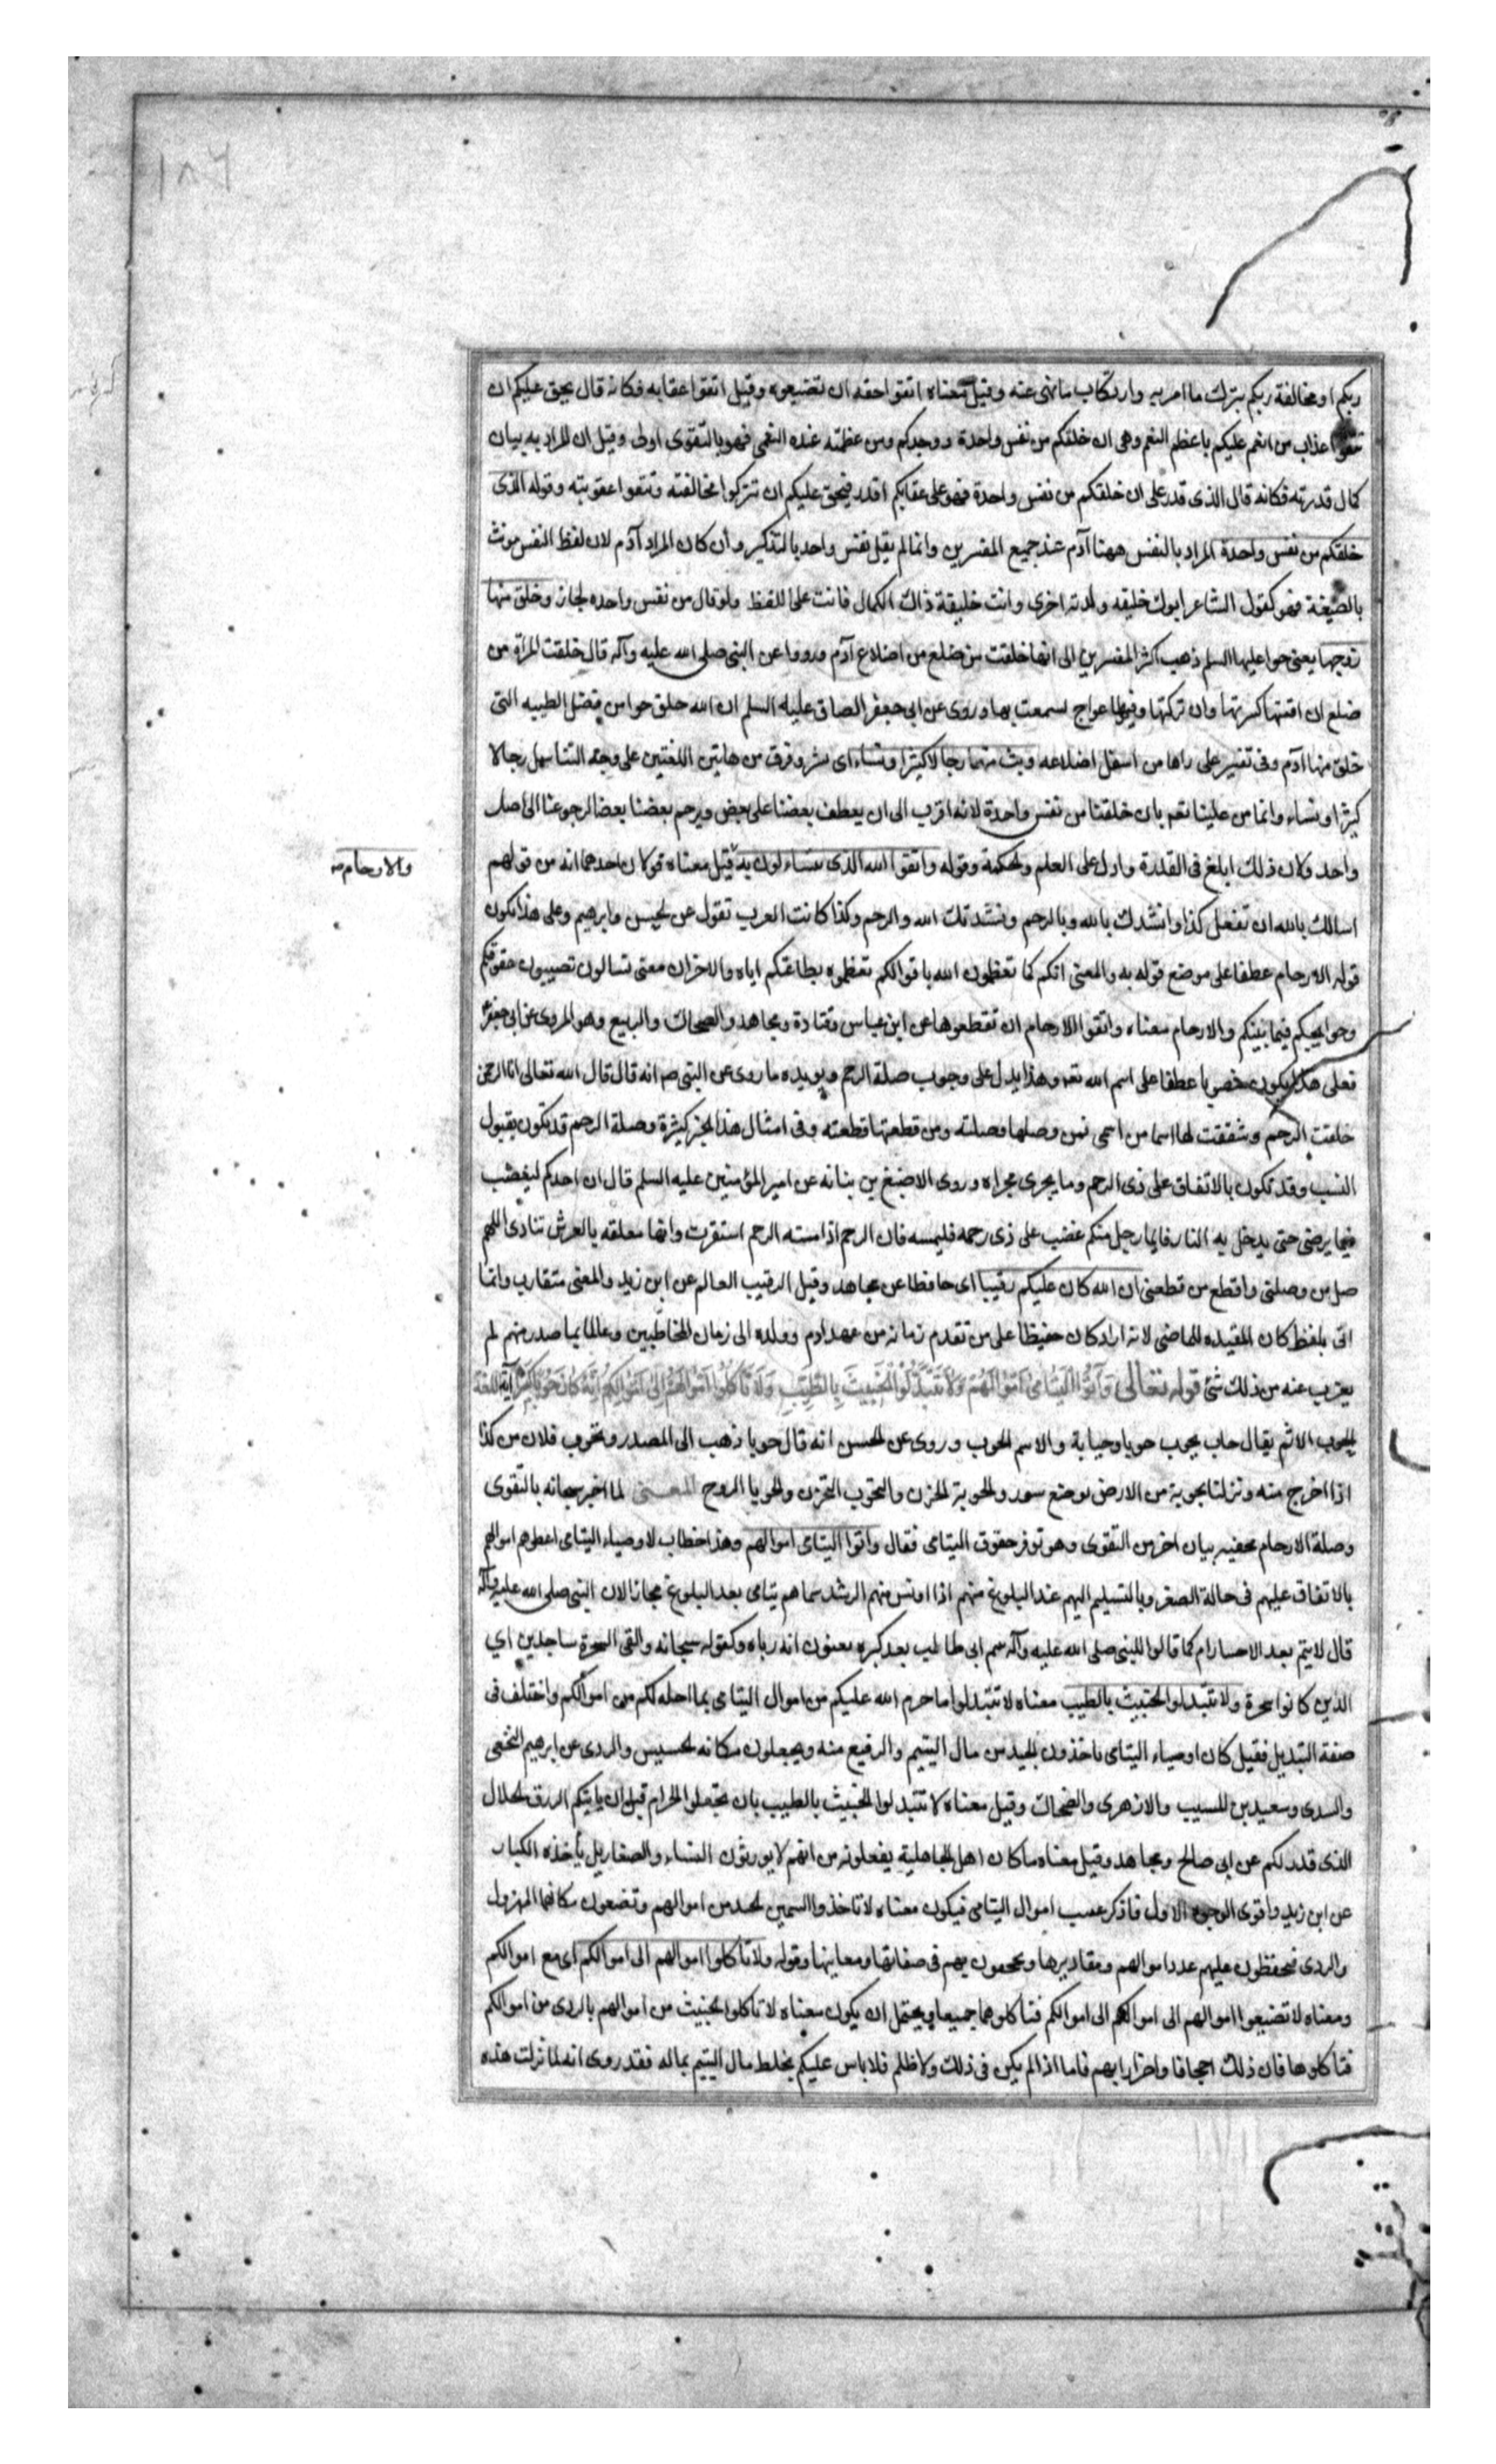 ١٨٦
ربكم او مخالفة ربكم بترك ما امر به وارتكاب ما نهى عنه وقيل معناه اتقوا حقه ان تضيعوه وقيل اتقوا عقابه فكانه قال يحق عليكم ان
تتقوا عذاب من انعم عليكم باعظم النعم وهى ان خلقكم من نفس واحدة ووجدكم ومن عظمته عنده النعمى فهو بالتقوى اولى وقيل ان المراد به بيان
كمال قدرته فكانه قال الذى قدر على ان خلقكم من نفس واحدة فهو على عقابكم اقدر فيحق عليكم ان تتركوا مخالفته وتتقوا عقوبته وقوله الذى
خلقكم من نفس واحدة المراد بالنفس ههنا آدم عند جميع المفسرين وانما لم يقل نفس واحد بالتذكير وأن كان المراد آدم لان لفظ النفس مونث
بالصيغة فهو كقول الشاعر ابوك خليفه ولدته اخرى وانت خليفة ذاك الكمال فانت على اللفظ ولو قال من نفس واحده لجاز وخلق منها
زوجها يعنى حوا عليها السلم ذهب اكثر المفسرين الى انها خلقت من ضلع من اضلاع آدم ورووا عن النبى صلى الله عليه وآله قال خلقت المراة من
ضلع ان اقمتها كسرتها وان تركتها وفيها اعواج استمتعت بها وروى عن ابى جعفر الصادق عليه السلم ان الله خلق حوا من فضل الطينه التى
خلق منها آدم وفى تفسير على راها من اسفل اضلاعه وبث منهما رجالا كثيرا ونساء اى نشر وفرق من هاتين اللفتين على وجه التناسل رجالا
كثيرا ونساء وانما من علينا نعم بان خلقنا من نفس واحدة لانه اقرب الى ان يعطف بعضنا على بعض ويرحم بعضنا بعضا لرجوعنا الى اصل
واحد ولان ذلك ابلغ فى القدرة وادل على العلم والحكمة وقوله واتقوا الله الذى تساءلون به قيل معناه قولان احدهما انه من قولهم
والارحام صه
اسالك بالله ان تفعل كذا وانشدك بالله وبالرحم ونشدتك الله والرحم وكذا كانت العرب تقول عن الحسن وابرهيم وعلى هذا يكون
قوله الارحام عطفا على موضع قوله به والمعنى انكم كما تعظمون الله باقوالكم تعظموه بطاعتكم اياه والاخر ان معنى تسالون تصيبون حقوقكم
وحوايجكم فيما بينكم والارحام معناه واتقوا الارحام ان تقطعوها عن ابن عباس وقتادة ومجاهد والضحاك والربيع وهو المروى عن ابى جعفر
فعلى هذا يكون منصوبا عطفا على اسم الله تعه وهذا يدل على وجوب صلة الرحم ويويده ما روى عن النبى صم انه قال قال الله تعالى انا الرحمن
خلقت الرحم وشققت لها اسما من اسمى فمن وصلها وصلته ومن قطعها قطعته وفى امثال هذا الخبر كثيرة وصلة الرحم قد يكون بقبول
النسب وقد تكون بالاتفاق على ذى الرحم وما يجرى مجراه وروى الاضبغ بن بناته عن امير المؤمنين عليه السلم قال ان احدكم ليغضب
فيما يرضى حتى يدخل به النار فايما رجل منكم غضب على ذى رحمه فليمسه فان الرحم اذا مسته الرحم استقرت وانها معلقه بالعرش تنادى اللهم
صل من وصلنى واقطع من قطعنى ان الله كان عليكم رقيبا اى حافظا عن مجاهد وقيل الرقيب العالم عن ابن زيد والمعنى متقارب وانما
اتى بلفظ كان المفيده للماضى لانه اراد كان حفيظا على من تقدم زمانه من عهد ادم وولده الى زمان المخاطبين وعالما بما صدر منهم لم
يعزب عنه من ذلك شئ قوله تعالى وَآتُوا الْيَتَامَى أَمْوَالَهُمْ وَلَا تَتَبَدَّلُوا الْخَبِيثَ بِالطَّيِّبِ وَلَا تَأْكُلُوا أَمْوَالَهُمْ إِلَى أَمْوَالِكُمْ إِنَّهُ كَانَ حُوبًا كَبِيرًا آية اللغة
الحوب الاثم يقال حاب يحوب حوبا وحيابة والاسم الحوب وروى عن الحسن انه قال حوبا ذهب الى المصدر وتحوب فلان من كذا
اذا اخرج منه ونزلنا بحوبة من الارض بوضع سود والحوبة الحزن والتحوب التحزن والحوبا الروح المعنى لما اخبر سبحانه بالتقوى
وصلة الارحام عقبه ببيان اخر من التقوى وهو توفر حقوق اليتامى فقال واتوا اليتامى اموالهم وهذا خطاب لاوصياء اليتامى اعطوهم اموالهم
بالاتفاق عليهم فى حالة الصغر وبالتسليم اليهم عند البلوغ منهم اذا اونس منهم الرشد سماهم يتامى بعد البلوغ مجازا لان النبى صلى الله عليه وآله
قال لايتم بعد الاحتلام كما قالوا للنبى صلى الله عليه وآله يتيم ابى طالب بعد كبره يعنون انه رباه وكقوله سبحانه والقى السحرة ساجدين اي
الذين كانوا سحرة ولا تتبدلوا الخبيث بالطيب معناه لا تتبدلوا ما حرم الله عليكم من اموال اليتامى بما احله لكم من اموالكم واختلف فى
صفة التبديل فقيل كان اوصياء اليتامى ياخذون الجيد من مال اليتيم والرفيع منه ويجعلون مكانه الخسيس والردى عن ابرهيم النخعى
والسدى وسعيد بن المسيب والازهرى والضحاك وقيل معناه لا تتبدلوا الخبيث بالطيب بان تتعجلوا الحرام قبل ان ياتيكم الرزق الحلال
الذى قدر لكم عن ابى صالح ومجاهد وقيل معناه ما كان اهل الجاهلية يفعلونه من انهم لا يورثون النساء والصغار بل يأخذه الكبار
عن ابن زيد واقوى الوجوه الاول فاذكر عقيب اموال اليتامى فيكون معناه لا تاخذوا السمين الجيد من اموالهم وتضعون مكانها المهزول
والردى فتحفظون عليهم عدد اموالهم ومقاديرها وتجحفون بهم فى صفاتها ومعاينها وقوله ولا تاكلوا اموالهم الى اموالكم اى مع اموالكم
ومعناه لا تضيعوا اموالهم الى اموالكم الى اموالكم فتاكلوهما جميعا ويحتمل ان يكون معناه لا تاكلوا الخبيث من اموالهم بالردى من اموالكم
فتاكلوها فان ذلك اجحافا واضرارا بهم فاما اذا لم يكن فى ذلك ولا ظلم فلا باس عليكم بخلط مال اليتيم بماله فقد روى انه لما نزلت هذه